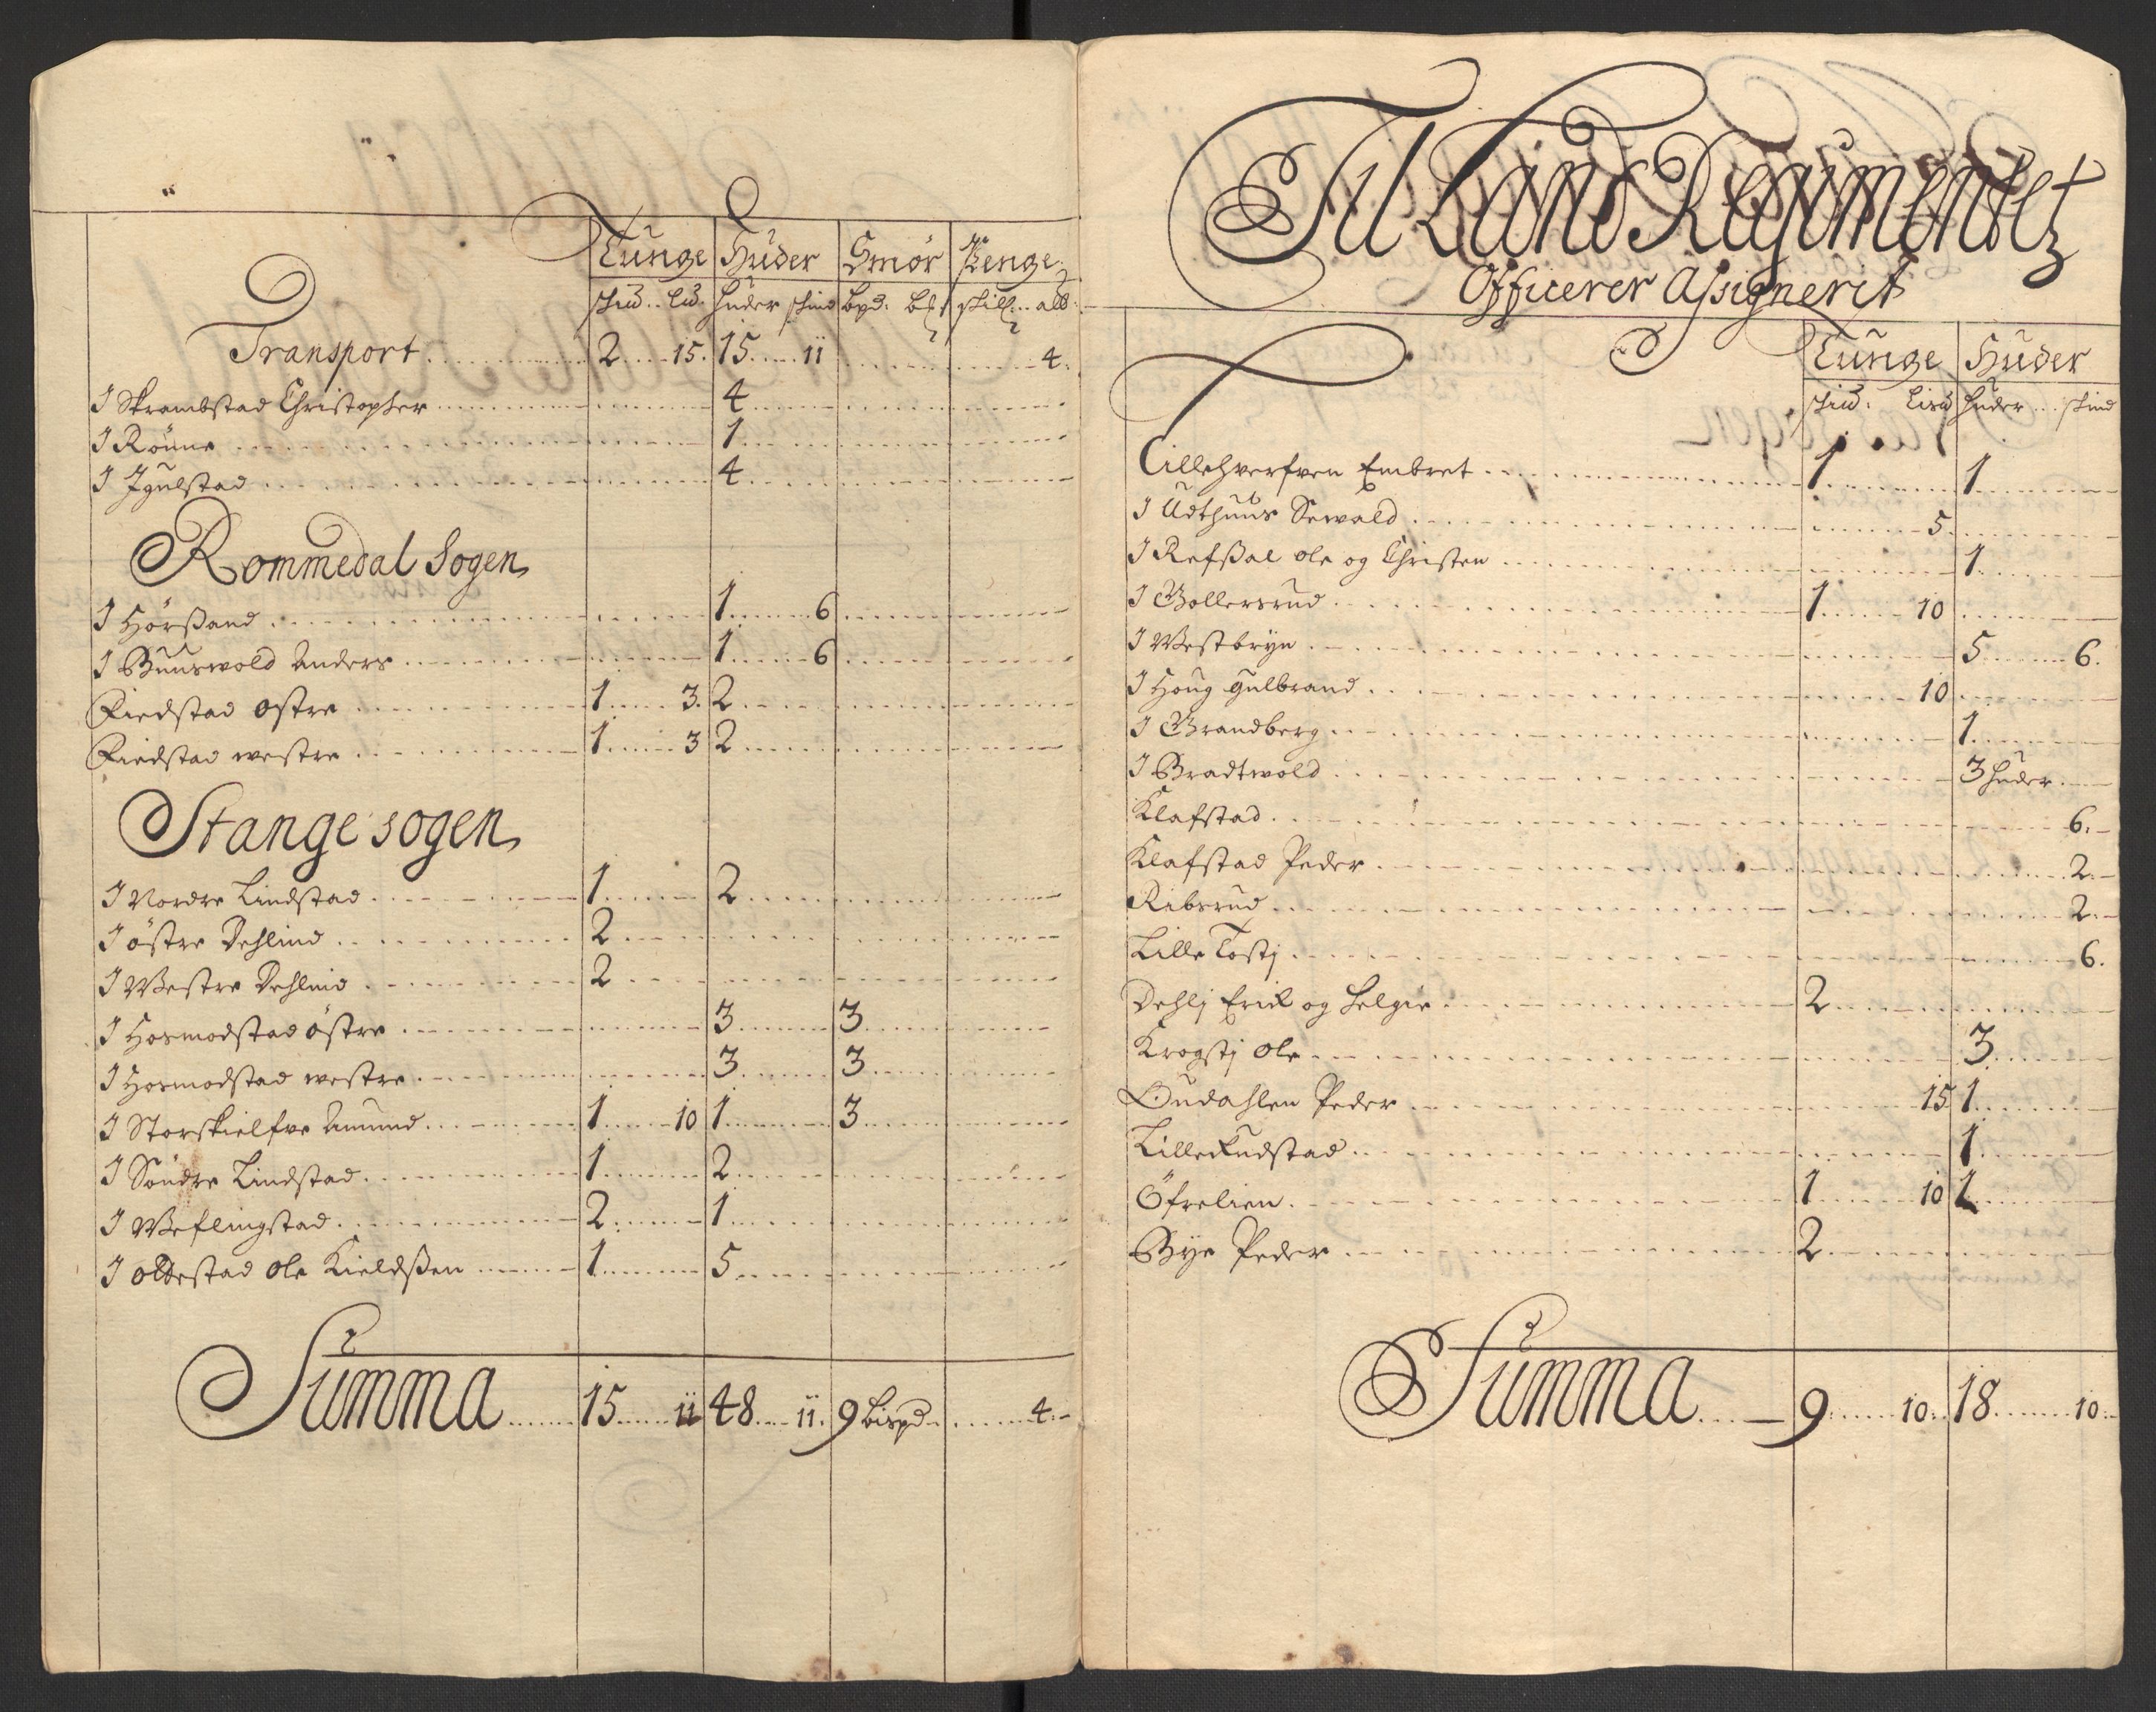 Tunge Huder Smör Penge
skud. Lid. huder skind bpd. skill alb
Transport 2 15. 15 11 4.
I Skrambstad Christopher 4
I Rönne 1
I Igulstad 4
Rommedal Sogen
I Hörsand 1 6
I Buunswold Anders 1 6
Fiedstad ostre 1 3. 2
Fiedstad westre 1 3 2
Stange sogen
I Nordre Lindstad 1 2
I östre Dehlind 2
I Westre Dehlind 2
I Hosmodstad östre 3 3
I Hosmodstad westre 3 3
I Storskielfve Amund 1 10 1 3
I Söndre Lindstad 1 2
I Weflingstad 2 1
I oldestad Ole Kieldßen 1 5
Summa 15 11 48 11. 9 bispd. 4.
Til Land Regimentetz
Officerer Assignerit
Tunge Huder
skid. Lisd huder skind
Lillehverfven Embret 1 1
I Udthuus Sewald 5.
I Refßal ole og Christen 1
I Gollersrud 1 10
I Westbryn 5 6.
I Houg Gulbrand 10
I Brandberg 1
I Bradtwold 3 huder
Klafstad 6.
Klafstad Peder 2.
Ribsrud 2.
Lille Tostj 6.
Dehlj Erick og Helgie 2
Krogstj Ole 3
Oudahlen Peder 15 1
Lille Rudstad 1
Öfrelien 1 10 1
Bye Peder 2
Summa 9 10. 18 10.